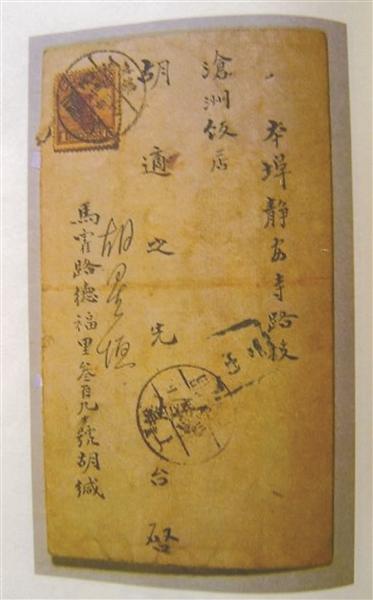 本埠靜安寺路投
滄洲飯店
胡適之先台啟
胡
馬霍路德福里叁百九十號胡緘